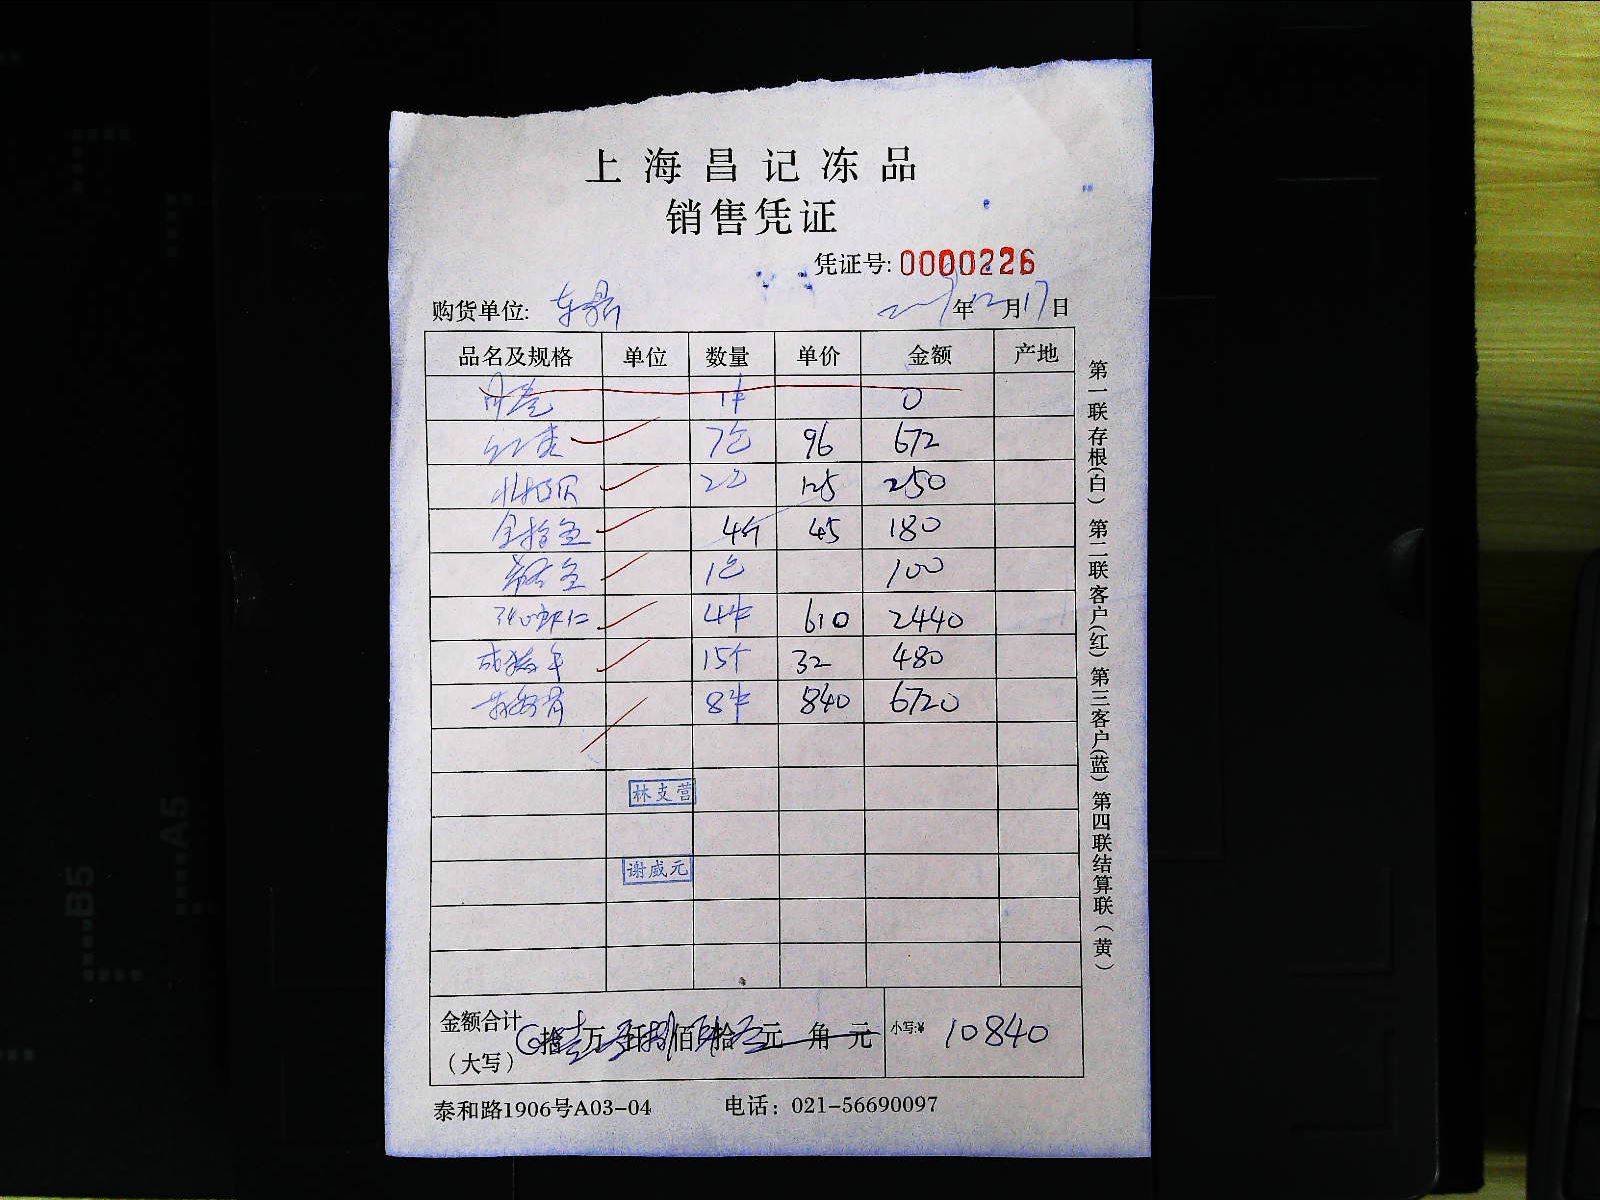 上海昌记冻品
销售凭证
凭证号: 0000226
购货单位: 年 12月17日
品名及规格 单位 数量 单价 金额 产地
1件 0
7包 96 672
2包 125 250
4个 45 180
1包 100
虾仁 4件 610 2440
15个 32 480
8件 840 6720
林支营
谢威元
金额合计 拾 万 仟 佰 拾 元 角 元 小写:¥ 10840
(大写)
泰和路1906号A03-04 电话: 021-56690097
第一联存根(白) 第二联客户(红) 第三客户(蓝) 第四联结算联(黄)
B5
A5